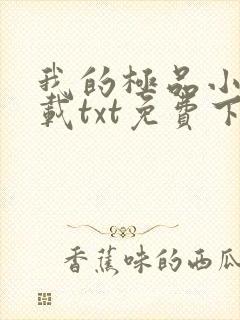 我的極品小
載txt免費下
香蕉味的西瓜